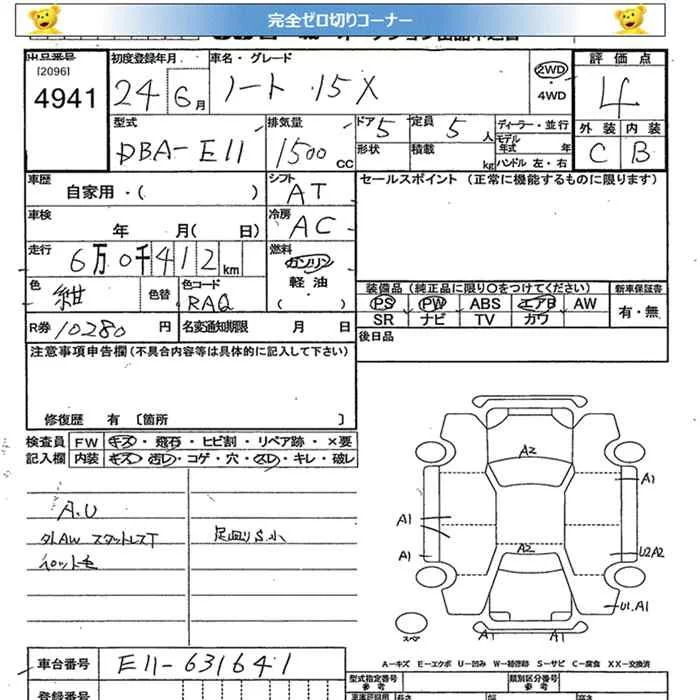 完全ゼロ切りコーナー
出品番号
[2096]
4941
初度登録年月
24 6月
車名・グレード
ノート 15X
2WD
・
4WD
評価点
4
外装 内装
C B
型式
DBA-E11
排気量
1500 CC
ドア 5
定員 5 人
形状
積載 kg
ディーラー・並行
モデル年式 年
ハンドル 左・右
車歴
自家用・( )
シフト
AT
車検
年 月( 日)
冷房
AC
走行
6万0千412km
燃料
ガソリン
軽油
( )
色
紺
色替
色コード
RAQ
R券 10280 円
名変通知期限 月 日
セールスポイント (正常に機能するものに限ります)
装備品 (純正品に限り○をつけてください)
PS PW ABS エアB AW
SR ナビ TV カワ
新車保証書
有・無
後日品
注意事項申告欄(不具合内容等は具体的に記入して下さい)
修復歴 有 〔箇所 〕
検査員 FW キズ・飛石・ヒビ割・リペア跡・×要
記入欄 内装 キズ・汚レ・コゲ・穴・スレ・キレ・破レ
A.U
外AW スタットレスT
ペット毛
足回りS小
A2
A1
A1
A1
A2
U2A2
U1.A1
スペア
A1
A1
A-キズ E-エクボ U-凹み W-補修跡 S-サビ C-腐食 XX-交換済
車台番号 E11-631641
登録番号
型式指定番号
参考
類別区分番号
参考